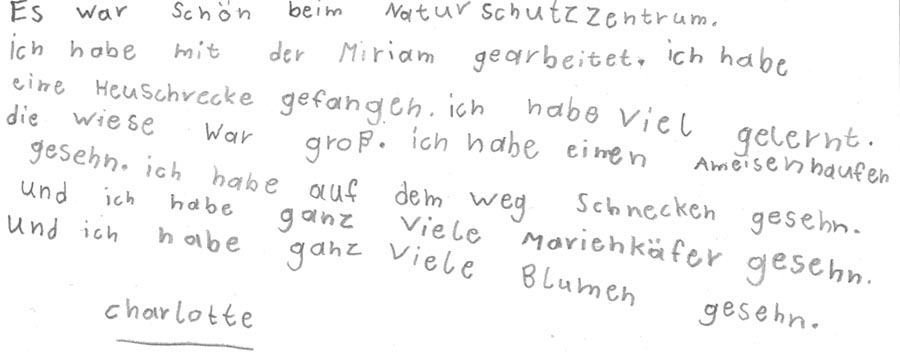 Es war schön beim Naturschutzzentrum.
ich habe mit der Miriam gearbeitet. ich habe
eine Heuschrecke gefangen. ich habe viel gelernt.
die wiese war groß. ich habe einen Ameisenhaufen
gesehn. ich habe auf dem weg Schnecken gesehn.
und ich habe ganz viele Marienkäfer gesehn.
und ich habe ganz viele Blumen gesehn.
charlotte